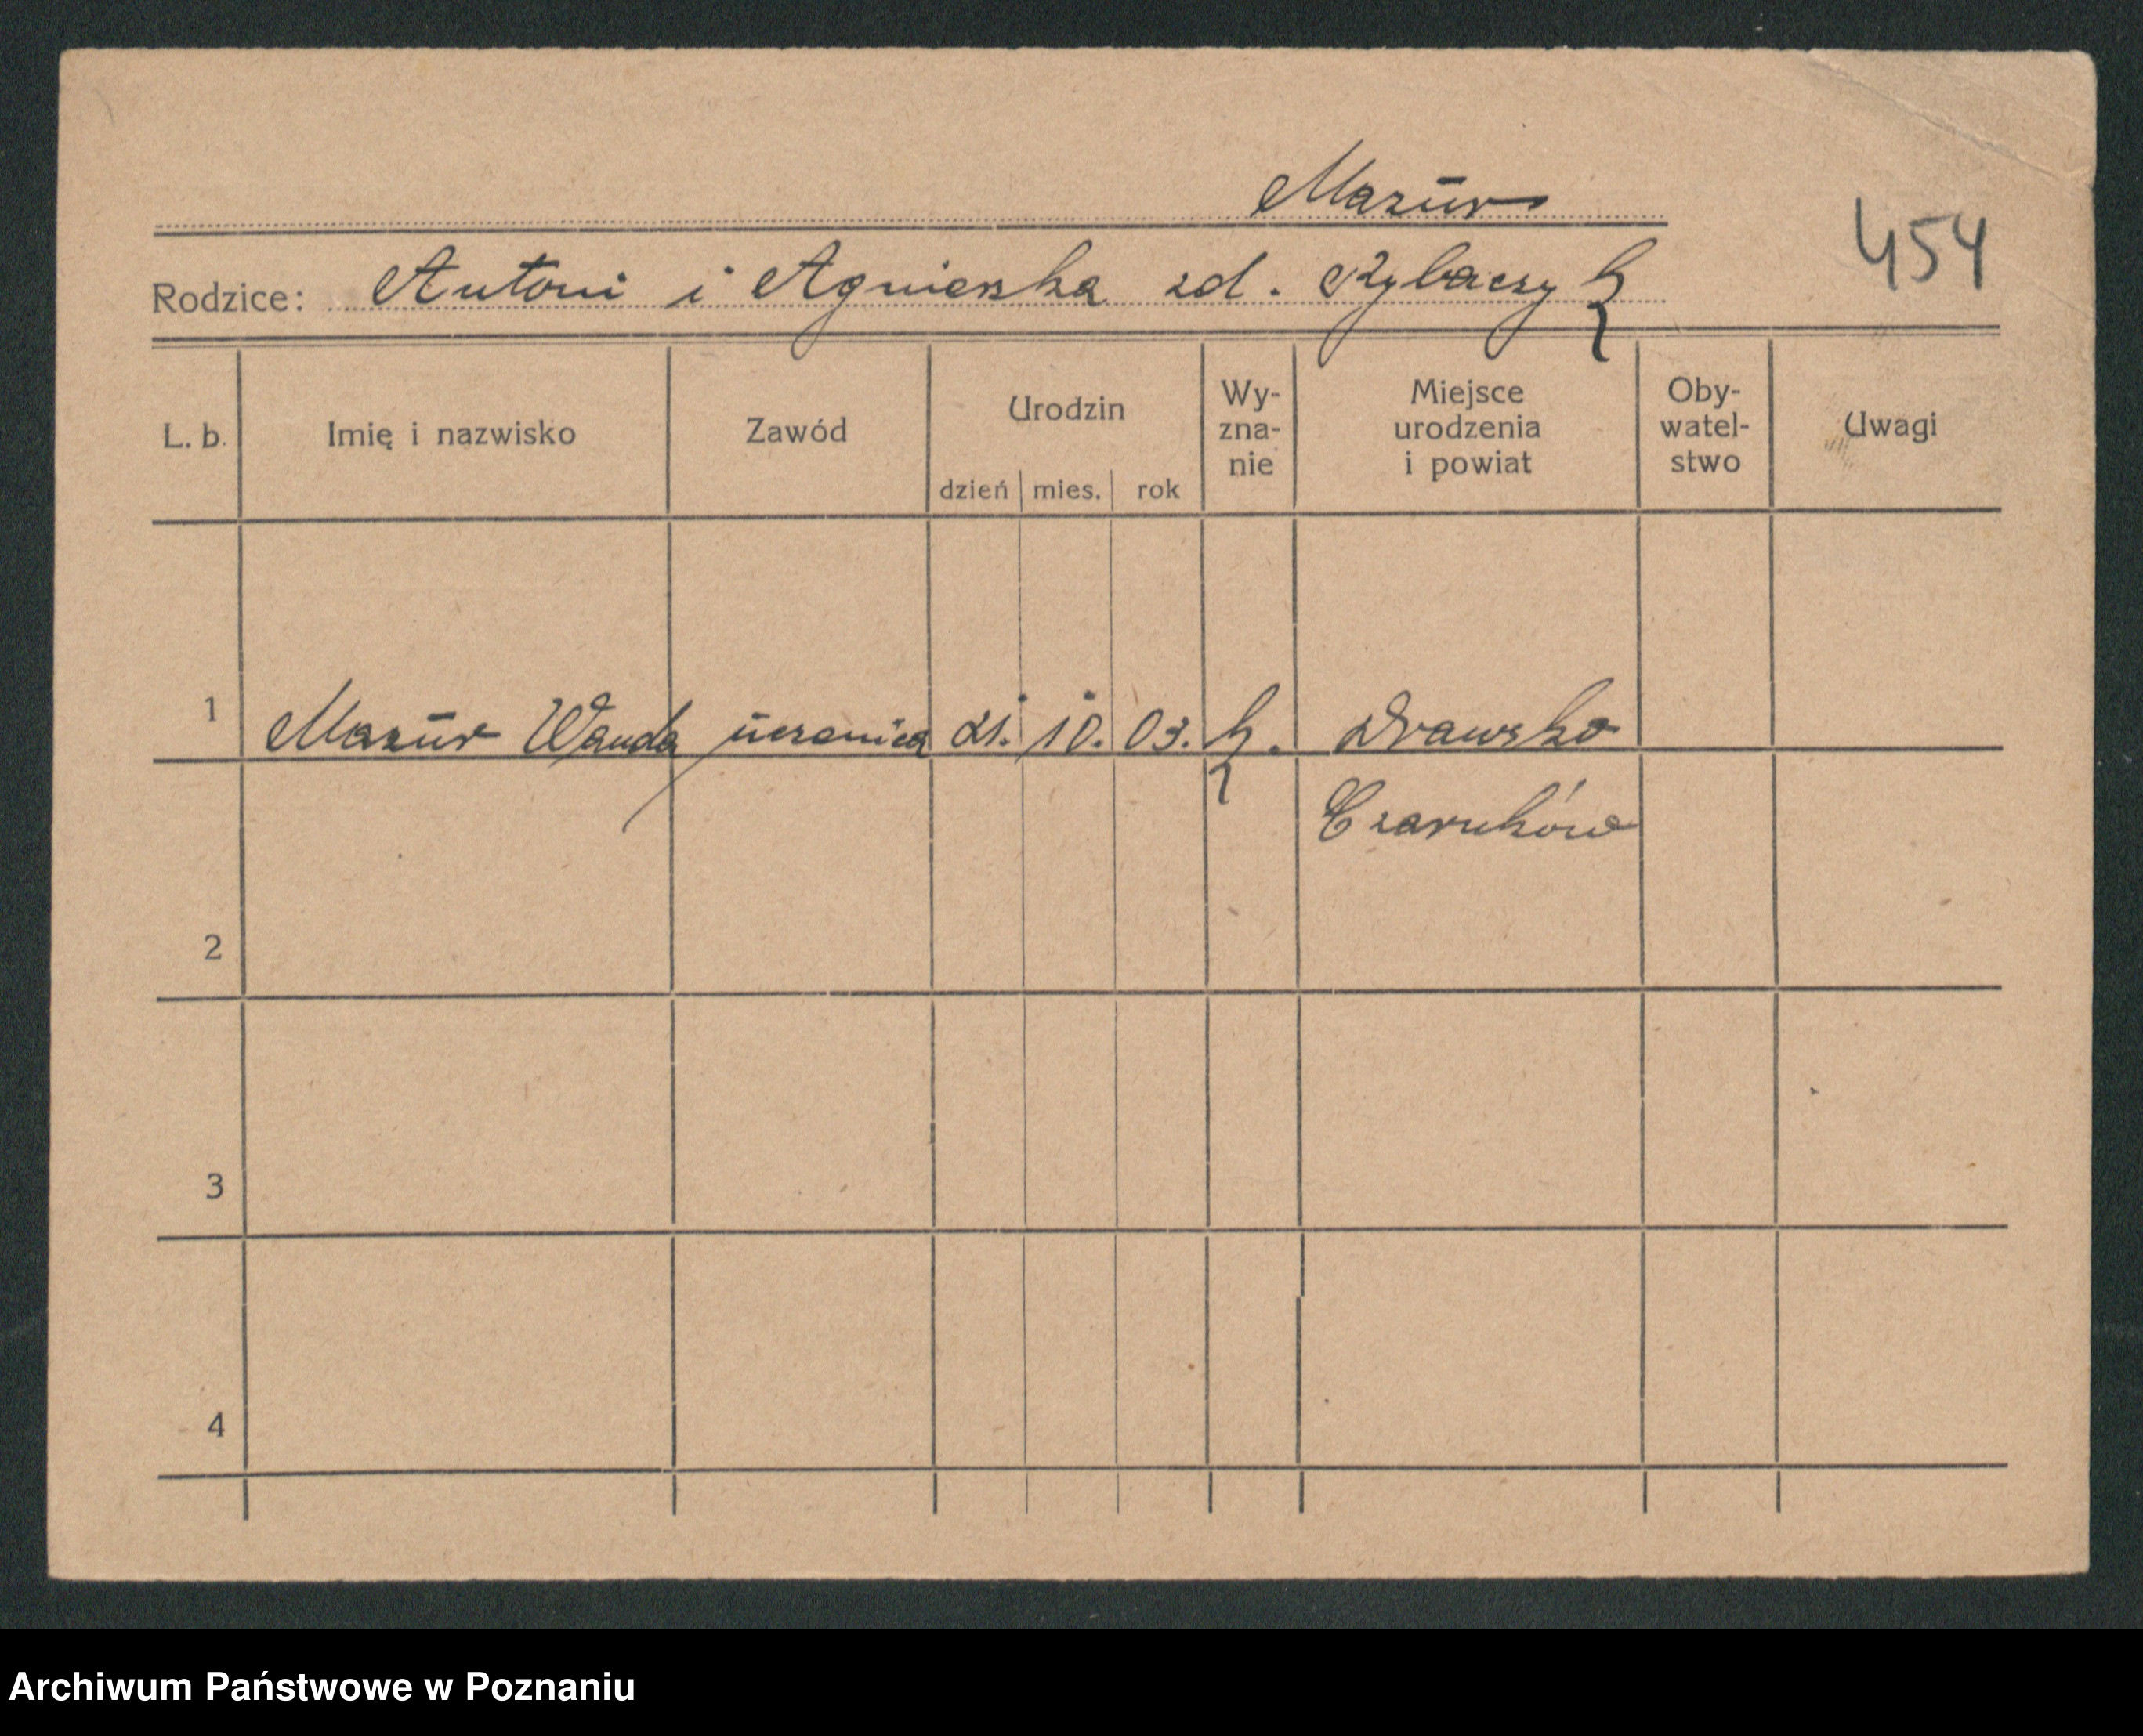 Mazur
454
Rodzice: Antoni i Agnieszka zd. Rybaczyk
L. b. Imię i nazwisko Zawód Urodzin dzień mies. rok Wy-zna-nie Miejsce urodzenia i powiat Oby-watel-stwo Uwagi
1 Mazur Wanda uczenica 21. 10. 03. k. Drawsko
Czarnków
2
3
4
Archiwum Państwowe w Poznaniu